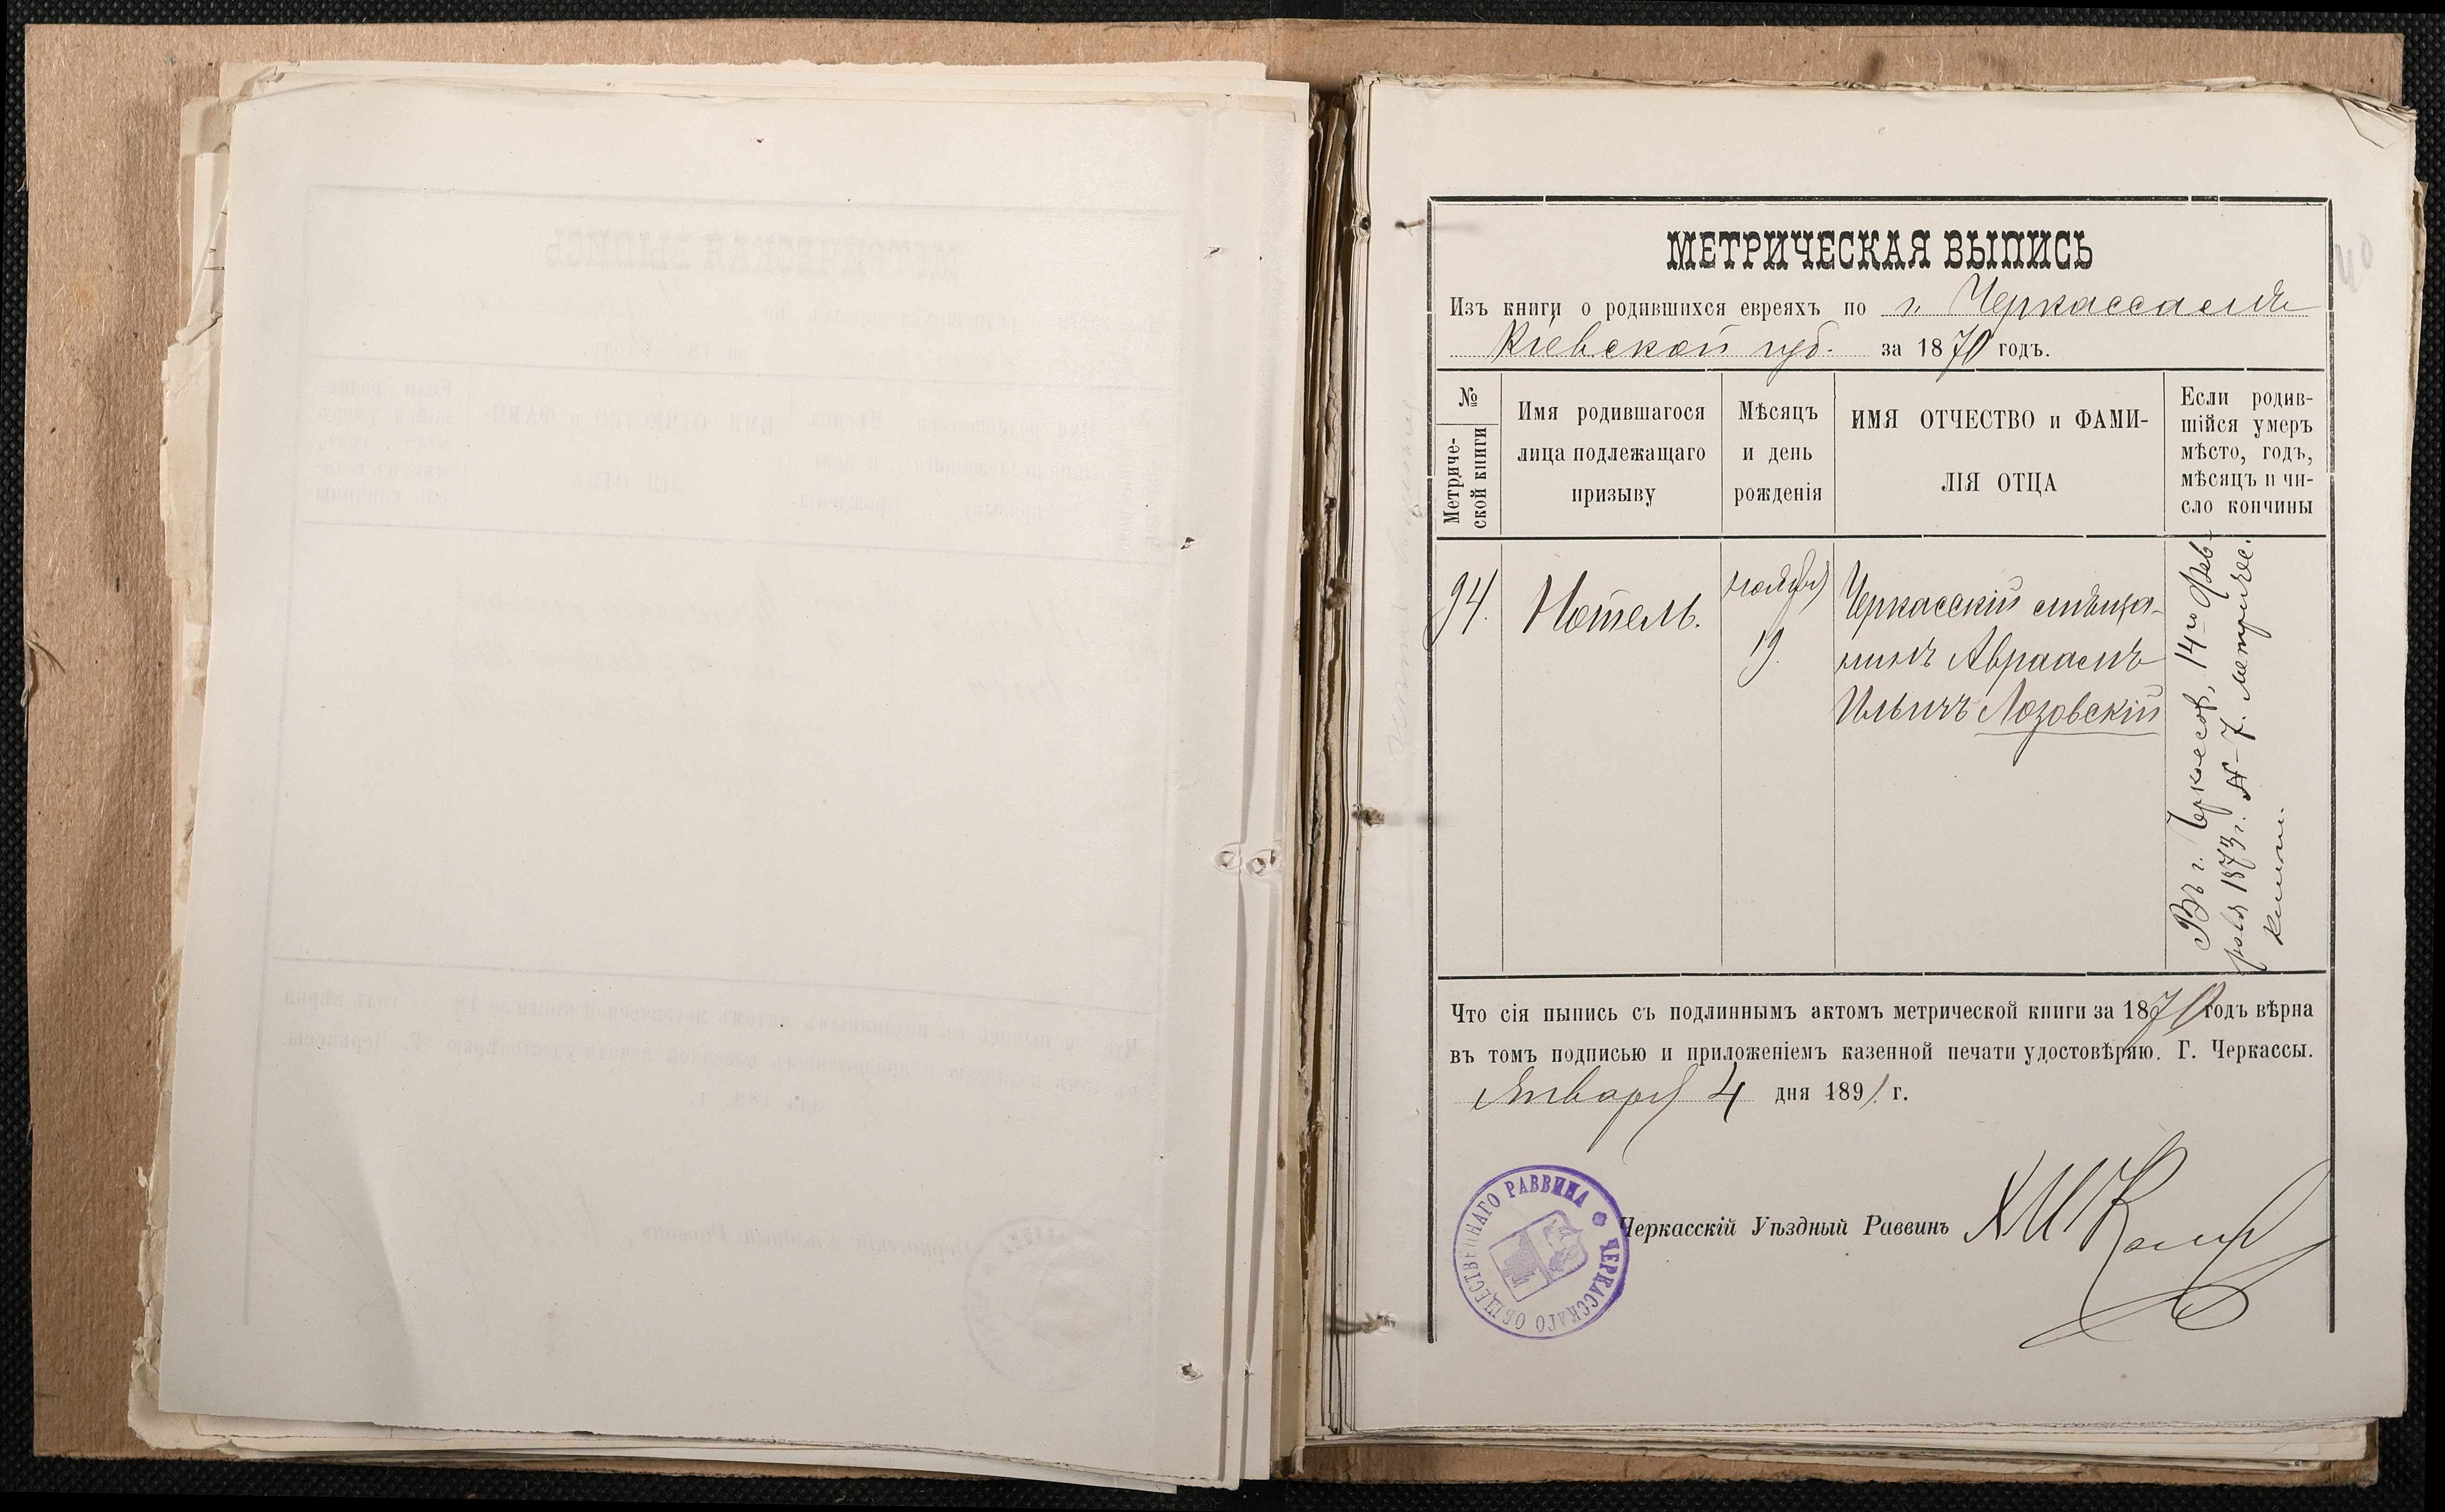 МЕТРИЧЕСКАЯ ВЫПИСЬ
Изъ книги о родившихся евреяхъ по г. Черкассамъ
Кіевской губ. за 1870 годъ.
№
Метриче-
ской книги
Имя родившагося
лица подлежащаго
призыву
Мѣсяцъ
и день
рожденія
ИМЯ ОТЧЕСТВО и ФАМИ-
ЛІЯ ОТЦА
Если родив-
шійся умеръ
мѣсто, годъ,
мѣсяцъ и чи-
сло кончины
94.
Нотель.
ноября
19.
Черкасскій мѣща-
нинъ Авраамъ
Ильичъ Лозовскій
Въ г. Черкассах, 14го фев-
раля 1873 г. № 7. метриче.
книги.
Что сія выпись съ подлиннымъ актомъ метрической книги за 1870 годъ вѣрна
въ томъ подписью и приложеніемъ казенной печати удостовѣряю. Г. Черкассы.
Января 4 дня 1891 г.
Черкасскій Уѣздный Раввинъ
ЧЕРКАССКАГО ОБЩЕСТВЕННАГО РАВВИНА
40